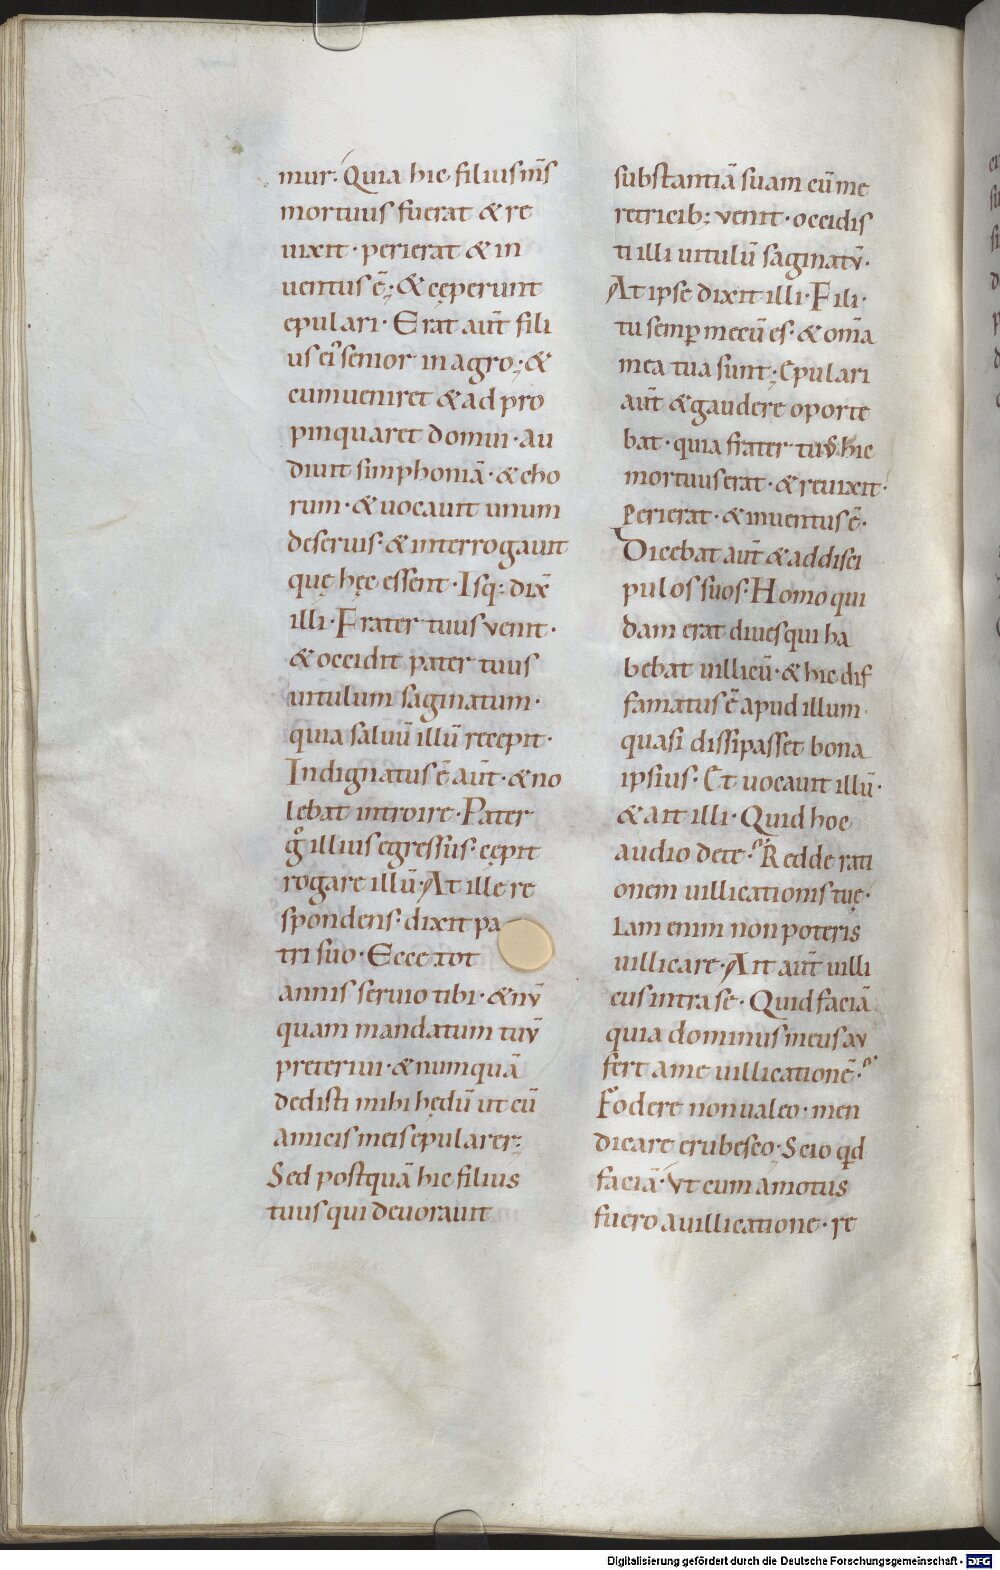 mur. Quia hic filius m̅s
mortuus fuerat & re
uixit · perierat & in
uentus ē; & cęperunt
epulari · Erat aut̄ fili
us ei' senior in agro; &
cum ueniret & ad pro
pinquaret domui · au
diuit simphoniā · & cho
rum · & uocauit unum
de seruis · & interrogauit
quę hęc essent · Isq; dix̄
illi · Frater tuus venit ·
& occidit pater tuus
uitulum saginatum ·
quia saluū illū recepit ·
Indignatus ē aut̄ · & no
lebat introire · Pater
gͦ illius egressus · cępit
rogare illū · At ille re
spondens · dixit pa
tri suo · Ecce tot
annis seruio tibi · & nv̄
quam mandatum tuv̄
preteriui · & numquā
dedisti mihi hędū ut cū
amicis meis epularer;
Sed postquā hic filius
tuus qui deuorauit
substantiā suam cū me
retricib; venit · occidis
ti illi uitulū saginatv̄ ·
At ipse dixit illi · Fili ·
tu semꝑ mecū es · & om̄a
mea tua sunt; Epulari
aut̄ & gaudere oporte
bat · quia frater tuvs hic
mortuus erat · & reuixit ·
ꝑierat · & inuentus ē ·
Dicebat aut̄ & ad disci
pulos suos · Homo qui
dam erat diues qui ha
bebat uillicū · & hic dif
famatus ē apud illum
quasi dissipasset bona
ipsius · Et uocauit illū ·
& ait illi · Quid hoc
audio de te · Redde rati
onem uillicationis tuę ·
Iam enim non poteris
uillicare · Ait aut̄ uilli
cus intra se · Quid faciā
quia dominus meus av
fert a me uillicationē ·
Fodere non ualeo · men
dicare erubesco · Scio qd̄
faciā · Vt cum amotus
fuero a uillicatione · re
Digitalisierung gefördert durch die Deutsche Forschungsgemeinschaft - DFG